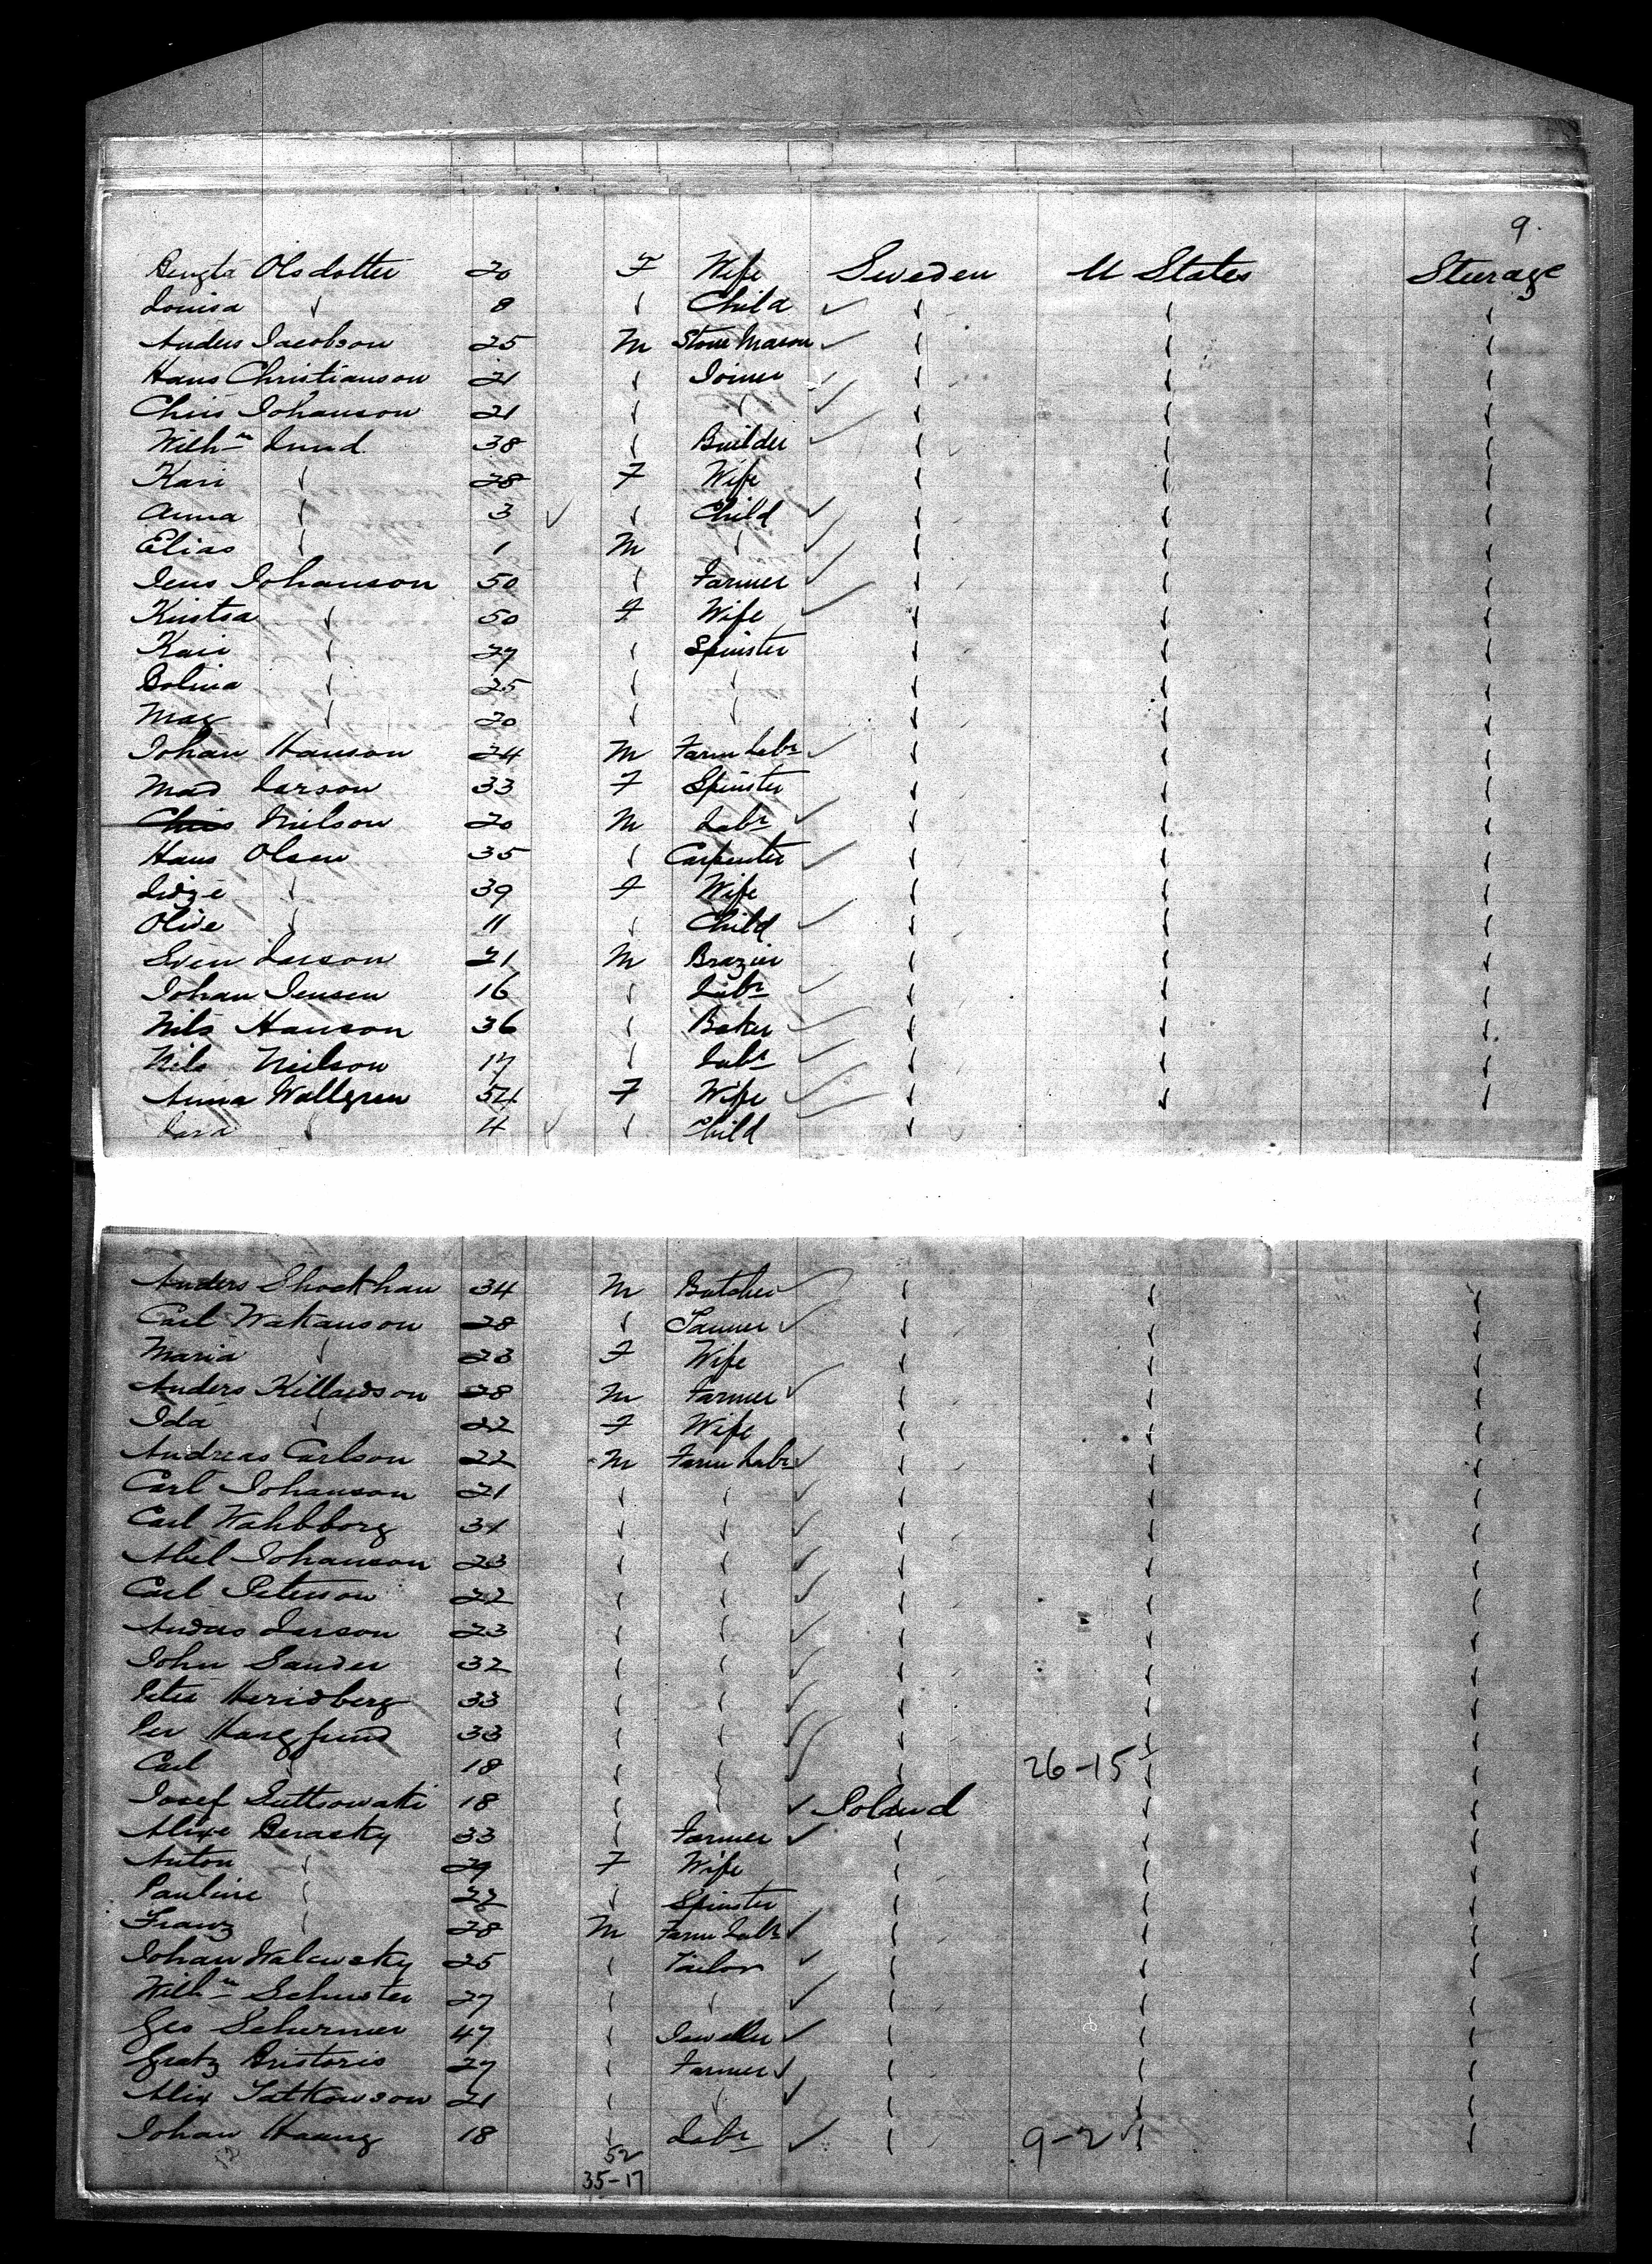 9.
Bengta Olsdotter 20 F Wife Sweden U States Steerage
Louisa √ 8 √ Child √ √ √
Anders Jacobson 25 M Stone Mason √ √ √
Hans Christianson 21 √ Joiner √ √ √
Chris Johanson 21 √ √ √ √ √
Wilhm Lund 38 √ Builder √ √ √
Kari √ 28 F Wife √ √ √
Anna √ 3 √ Child √ √ √
Elias √ 1 M √ √ √ √
Jens Johanson 50 √ Farmer √ √ √
Kristsa √ 50 F Wife √ √ √
Kari √ 27 √ Spinster √ √ √
Bolina √ 25 √ √ √ √ √
Mag √ 20 √ √ √ √ √
Johan Hanson 24 M Farm Labr √ √ √
Mad Larson 33 F Spinster √ √ √
Chris Nilson 20 M Labr √ √ √
Hans Olsen 35 √ Carpenter √ √ √
√ 39 F Wife √ √ √
Olive √ 11 √ Child √ √ √
Sven Larson 21 M Brazier √ √ √
Johan Jensen 16 √ Labr √ √ √
Nils Hanson 36 √ Baker √ √ √
Nils Neilson 17 √ Labr √ √ √
Anna Wallgren 54 F Wife √ √ √
Lara √ 4 √ Child √
Anders Shockhan 34 M Butcher √ √ √
Carl Wakanson 28 √ Tanner √ √ √
Maria √ 23 F Wife √ √ √
Anders Killawson 28 M Farmer √ √ √
Ida √ 22 F Wife √ √ √
Andreas Carlson 22 M Farm Labr √ √ √
Carl Johanson 21 √ √ √ √ √
Carl Wahbborg 31 √ √ √ √ √
Abel Johanson 23 √ √ √ √ √
Carl Peterson 22 √ √ √ √ √
Anders Larson 23 √ √ √ √ √
John Sander 32 √ √ √ √ √
Peter Heridberg 33 √ √ √ √ √
Per 33 √ √ √ √ √
Carl √ 18 √ √ √ 26-15 √ √
Josef 18 √ √ Poland √ √
Alixe Berasky 33 √ Farmer √ √ √
Anton √ 29 F Wife √ √ √
Pauline √ 22 √ Spinster √ √ √
Franz √ 28 M Farm Labr √ √ √
Johan Walewsky 25 √ Tailor √ √ √
Wilhm Schuster 27 √ √ √ √ √
Geo Schermer 47 √ Jeweller √ √ √
Gratz Bristoris 27 √ Farmer √ √ √
Alix Satkowson 21 √ √ √ √ √
Johan Haang 18 √ Labr √ 9-2 √ √
52
35-17